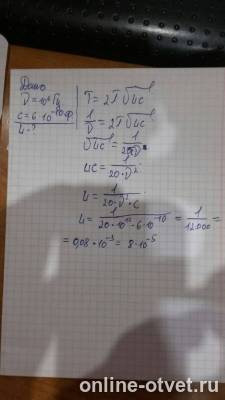 Дано
ν = 10⁶ Гц
C = 6·10⁻¹⁰ Ф
L - ?
T = 2π√LC
1/ν = 2π√LC
√LC = 1/2πν
LC = 1/20·ν²
L = 1/20·ν²·C
L = 1/20·10¹²·6·10⁻¹⁰ = 1/12.000 =
= 0,08·10⁻³ = 8·10⁻⁵
online-otvet.ru